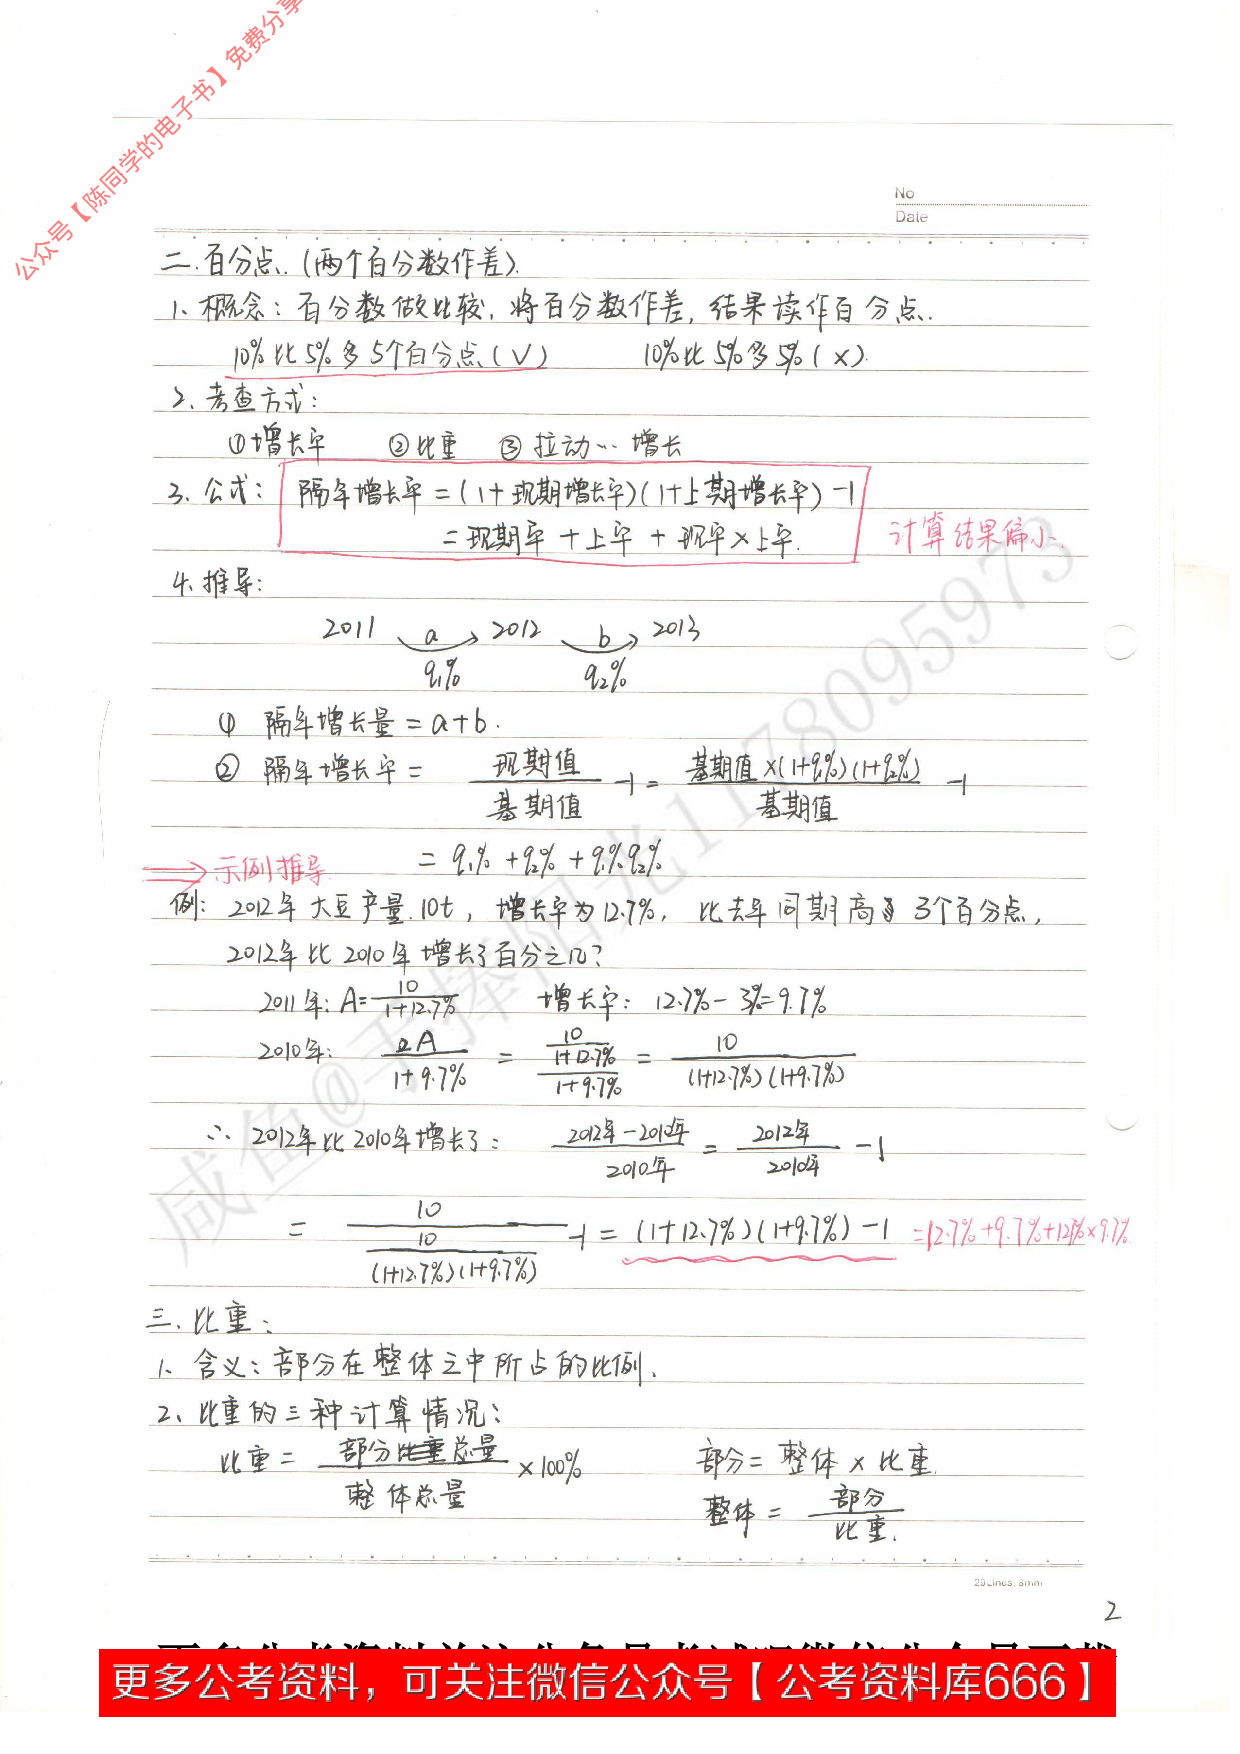 公众号【陈同学的电子书】免费分享
No
Date
二.百分点.(两个百分数作差).
1、概念：百分数做比较，将百分数作差，结果读作百分点.
10%比5%多5个百分点(√) 10%比5%多5%(×).
2、考查方式：
①增长率 ②比重 ③拉动…增长
3、公式：隔年增长率=(1+现期增长率)(1+上期增长率)-1
=现期率+上率+现率×上率.
计算结果偏小.
4、推导：
2011 a 2012 b 2013
q₁% q₂%
① 隔年增长量=a+b.
② 隔年增长率= 现期值/基期值 -1 = 基期值×(1+q₁%)(1+q₂%)/基期值 -1
= q₁%+q₂%+q₁%q₂%
示例推导
例：2012年大豆产量10t，增长率为12.7%，比去年同期高 3个百分点，
2012年比2010年增长了百分之几？
2011年：A=10/1+12.7% 增长率：12.7%-3%=9.7%
2010年： A/1+9.7% = 10/1+12.7%/1+9.7% = 10/(1+12.7%)(1+9.7%)
∴ 2012年比2010年增长了：2012年-2012年/2010年 = 2012年/2010年 -1
= 10/10/(1+12.7%)(1+9.7%) -1 = (1+12.7%)(1+9.7%)-1 =12.7%+9.7%+12.7%×9.7%
三.比重：
1、含义：部分在整体之中所占的比例.
2、比重的三种计算情况：
比重= 部分总量/整体总量 ×100% 部分=整体×比重.
整体= 部分/比重.
20Lines. 8mm
2
更多公考资料，可关注微信公众号【公考资料库666】
咸鱼@手捧阳光1178095973